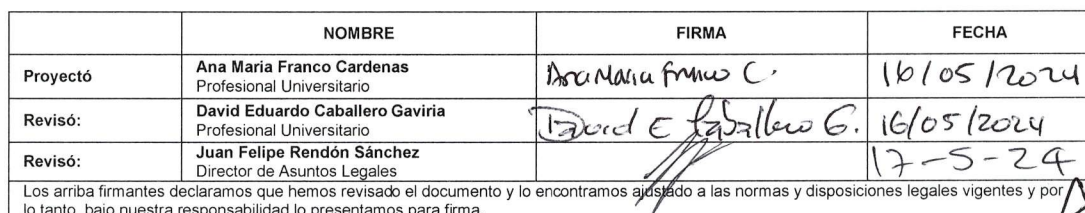 NOMBRE FIRMA FECHA
Proyectó Ana Maria Franco Cardenas Profesional Universitario Ana Maria Franco C. 16/05/2024
Revisó: David Eduardo Caballero Gaviria Profesional Universitario David E Caballero G. 16/05/2024
Revisó: Juan Felipe Rendón Sánchez Director de Asuntos Legales 17-5-24
Los arriba firmantes declaramos que hemos revisado el documento y lo encontramos ajustado a las normas y disposiciones legales vigentes y por
lo tanto, bajo nuestra responsabilidad lo presentamos para firma.